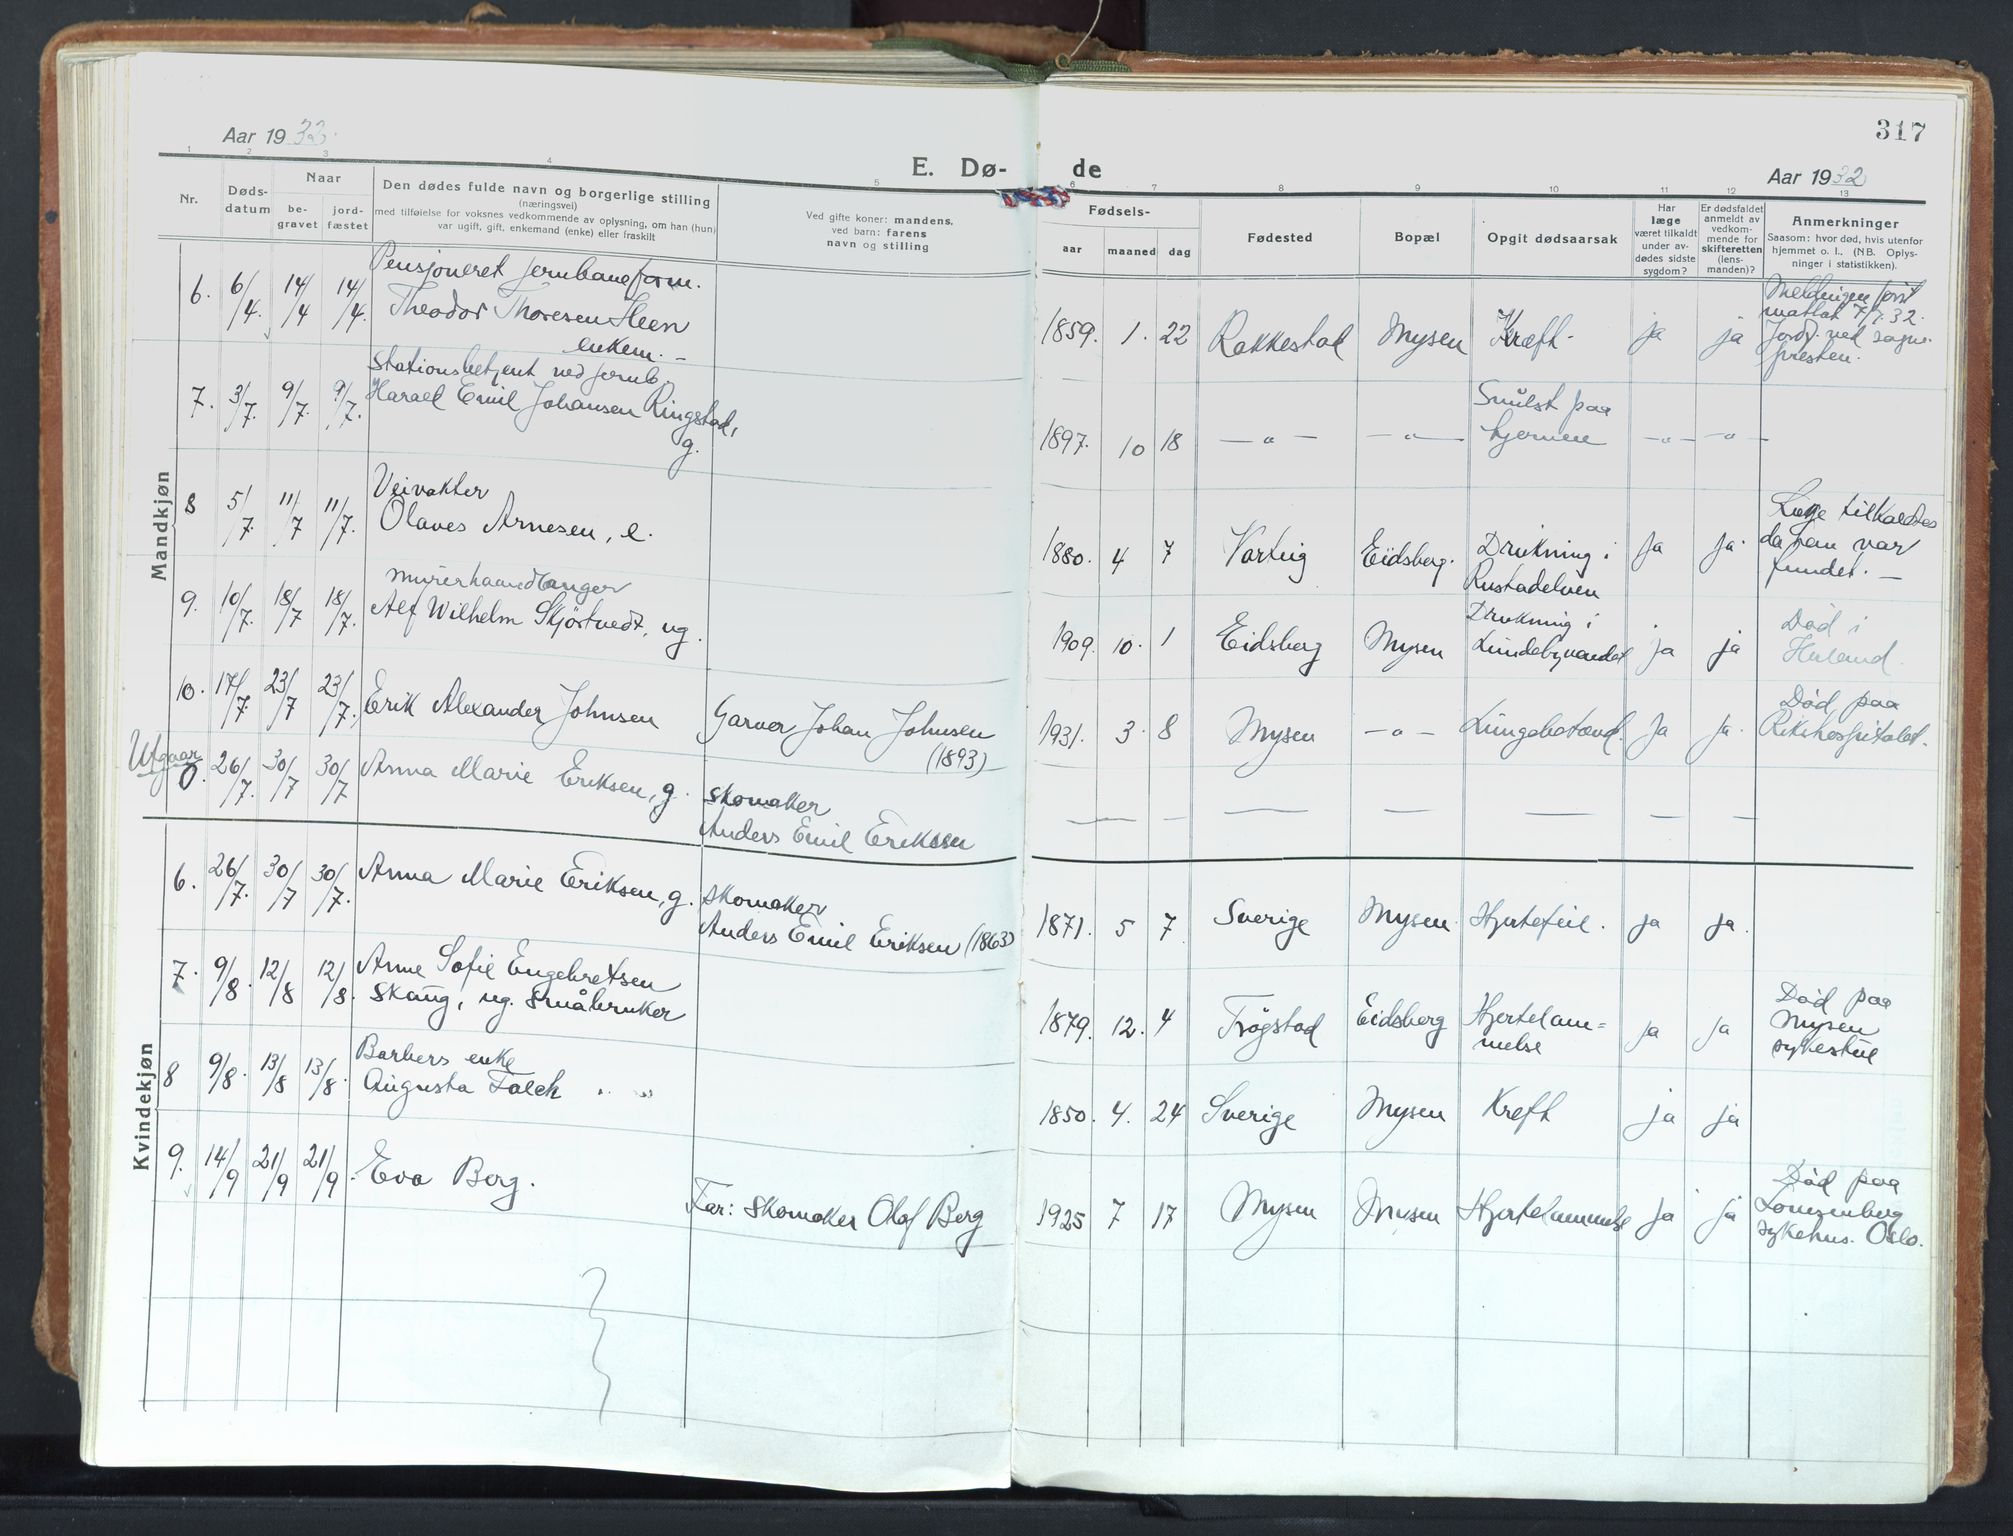 317
Aar 1932.
E. Dø-
de
Aar 1932
1 2 3 4 5 6 7 8 9 10 11 12 13
Nr.
Døds-
datum
Naar
be-
gravet
jord-
fæstet
Den dødes fulde navn og borgerlige stilling
(næringsvei)
med tilføielse for voksnes vedkommende av oplysning, om han (hun)
var ugift, gift, enkemand (enke) eller fraskilt
Ved gifte koner: mandens.
ved barn: farens
navn og stilling
Fødsels-
aar
maaned
dag
Fødested
Bopæl
Opgit dødsaarsak
Har
læge
været tilkaldt
under av-
dødes sidste
sygdom?
Er dødsfaldet
anmeldt av
vedkom-
mende for
skifteretten
(lens-
manden)?
Anmerkninger
Saasom: hvor død, hvis utenfor
hjemmet o. l., (NB. Oplys-
ninger i statistikken).
Mandkjøn
6. 6/4. 14/4 14/4.
Pensjoneret jernbaneform.
Theodor Thoresen Heen
enkem. –
1859. 1. 22 Rakkestad Mysen Kræft. ja ja
Meldingen først
mottat 7/7.32.
Jordf. ved sogne-
presten.
7. 3/7. 9/7. 9/7.
Stationsbetjent ved jernb.
Harald Emil Johansen Ringstad,
g.
1897. 10 18 — " — — " —
Svulst paa
hjernen
— " — — " — —
8 5/7. 11/7 11/7.
Veivakter
Olaves Arnesen, e.
1880. 4 7 Varteig Eidsberg.
Drukning i
Rustadelven
ja ja
Læge tilkaldtes
da han var
fundet. —
9. 10/7. 18/7 18/7.
Murerhaandlanger
Alf Wilhelm Skjørtvedt, ug.
1909. 10. 1 Eidsberg Mysen
Drukning i
Lundebyvandet
ja ja
Død i
Høland.
10. 17/7. 23/7 23/7.
Erik Alexander Johnsen
Garver Johan Johnsen
(1893)
1931. 3 8 Mysen — " — Lungebetænd. ja ja.
Død paa
Rikshospitalet.
Utgaar
0. 26/7. 30/7 30/7
Anna Marie Eriksen, g.
skomaker
Anders Emil Eriksen
— — — — — — — —
Kvindekjøn
6. 26/7. 30/7 30/7.
Anna Marie Eriksen, g.
skomaker
Anders Emil Eriksen (1863)
1871. 5 7 Sverige Mysen. Hjertefeil. ja ja.
7. 9/8. 12/8 12/8.
Anne Sofie Engebretsen
Skaug, ug. småbruker
1879. 12. 4 Trøgstad Eidsberg
Hjertelam=
melse
ja ja
Død paa
Mysen
sykestue
8 9/8. 13/8 13/8.
Barbers enke
Augusta Falch
1850. 4. 24 Sverige Mysen Kreft ja ja
9. 14/9 21/9 21/9.
Eva Berg.
Far: skomaker Olaf Berg
1925 7 17 Mysen Mysen Hjertelammelse ja ja
Død paa
Lovisenberg
sykehus. Oslo.